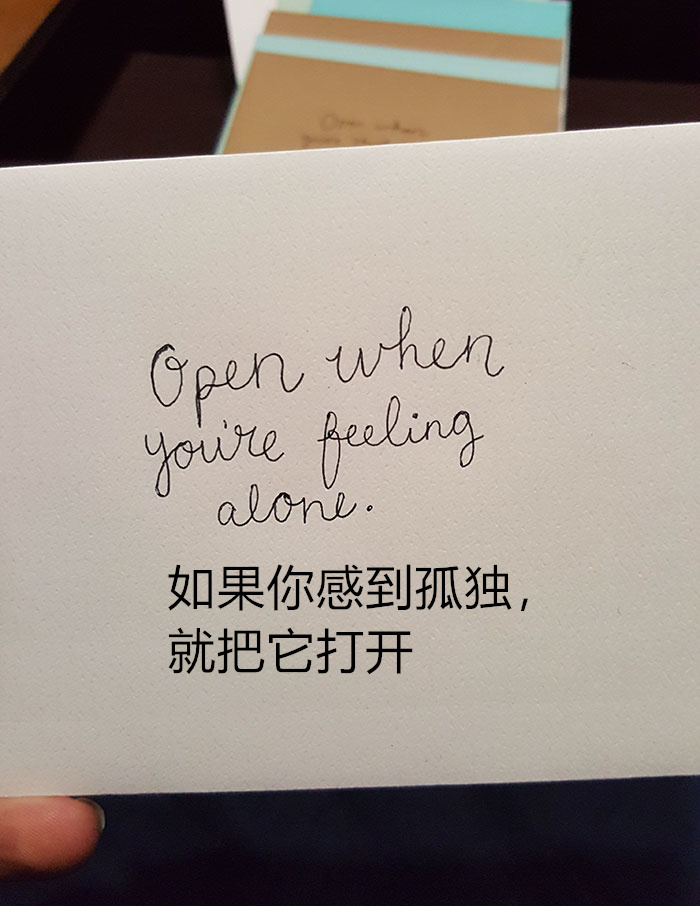 Open when
Open when
you're feeling
alone.
如果你感到孤独，
就把它打开